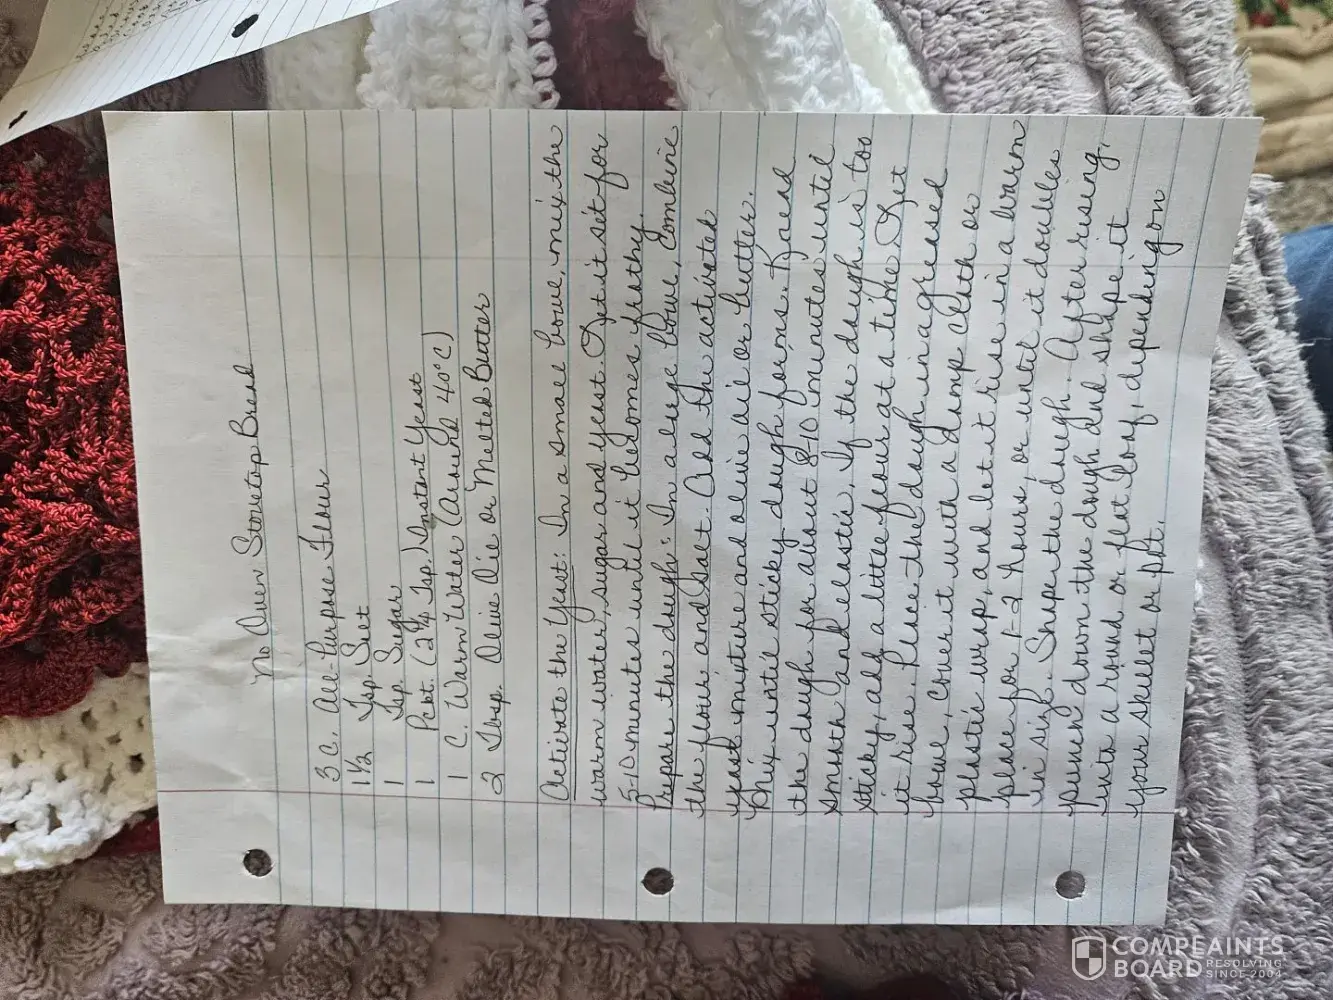 No Oven Stovetop Bread
3 C. All-Purpose Flour
1 1/2 Tsp. Salt
1 Tsp. Sugar
1 Pckt. (2 1/4 Tsp.) Instant Yeast
1 C. Warm Water (Around 40°C)
2 Tbsp. Olive Oil or Melted Butter
Activate the Yeast: In a small bowl, mix the
warm water, sugar and yeast. Let it set for
5-10 minutes until it becomes frothy.
Prepare the dough: In a large bowl, combine
the flour, and salt. Add the activated
yeast mixture and olive oil or butter.
Mix until sticky dough forms. Knead
the dough for about 8-10 minutes until
smooth and elastic. If the dough is too
sticky, add a little flour at a time. Let
it rise. Place the dough in a greased
bowl, cover it with a damp cloth or
plastic wrap, and let it rise in a warm
place for 1-2 hours, or until it doubles
in size. Shape the dough. After rising,
punch down the dough and shape it
into a round or flat loaf, depending on
your skillet or pot.
COMPLAINTS
BOARD RESOLVING
SINCE 2004